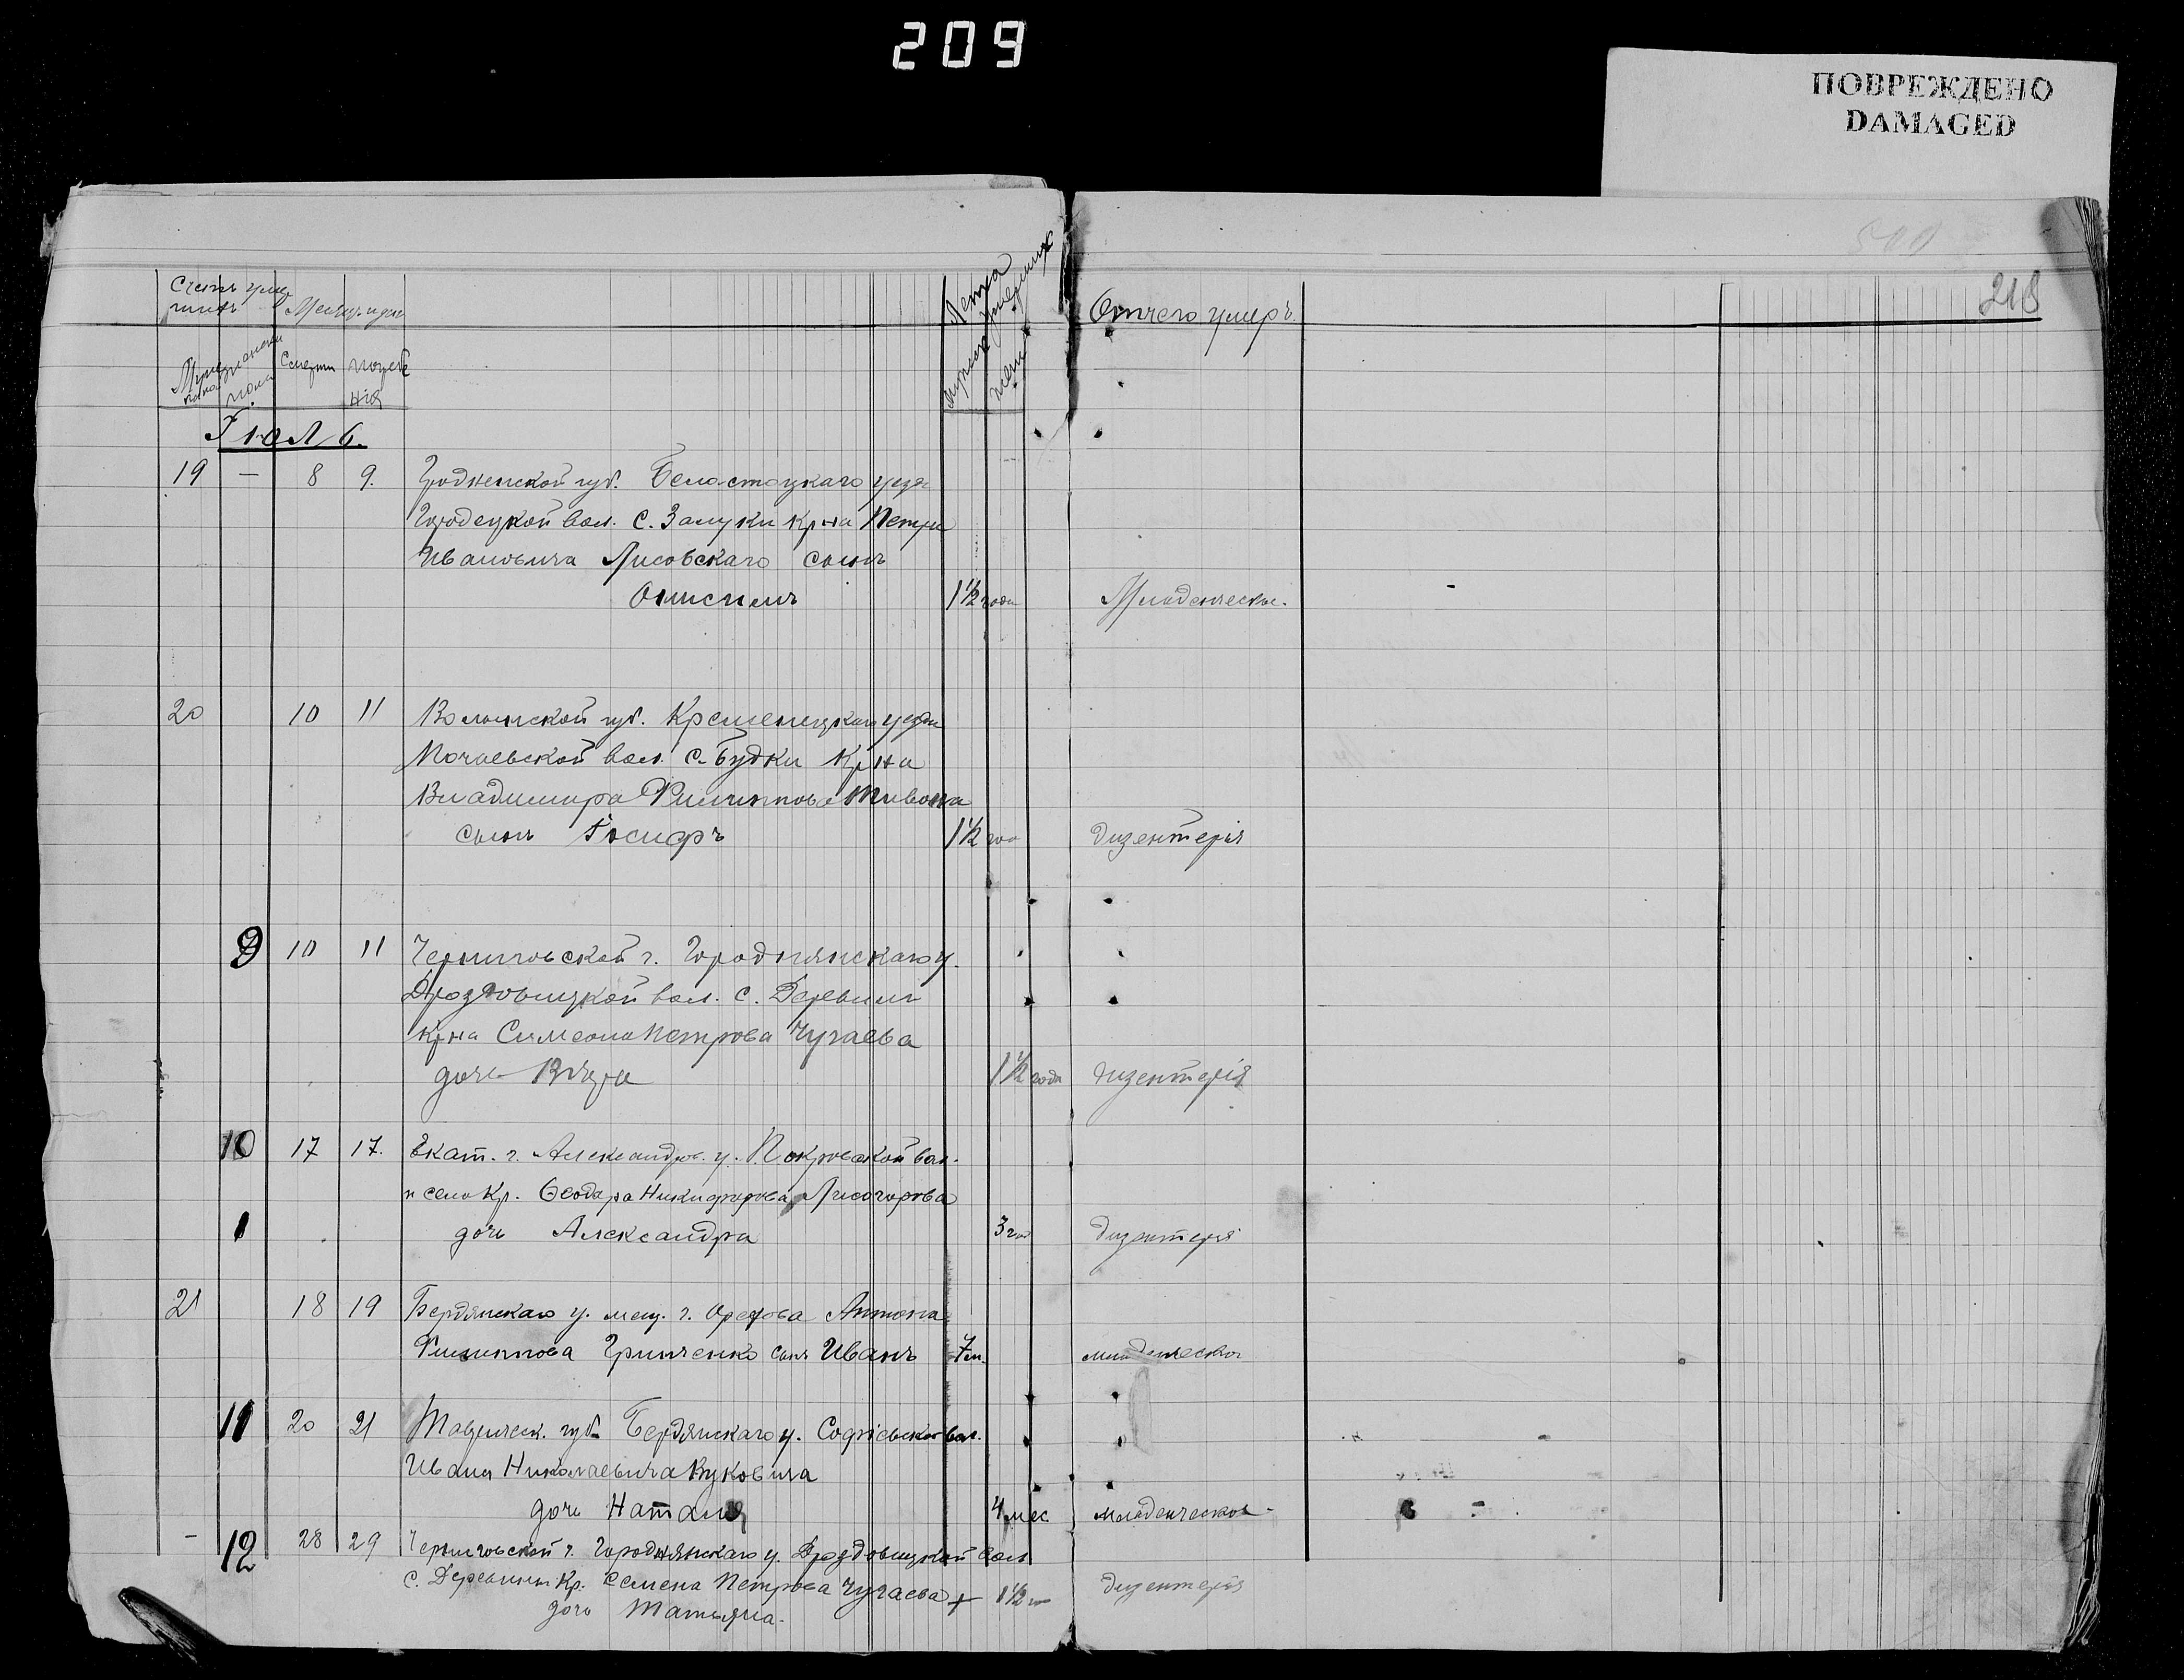 209
ПОВРЕЖДЕНО
DAMAGED
218
Счетъ умер
шихъ Месяцъ и день Лета умершихъ Отчего умеръ.
Мужеска пола Женска пола Смерти погребе
нія мужск женск
Іюль.
19 — 8 9. Гродненской губ. Белостоцкаго уезда
Городецкой вол. с. Залуки Кр-на Петра
Ивановича Лисовскаго сынъ
Онисимъ 1½ года Младенческое.
20 10 11 Волынской губ. Кременецкаго уезда
Почаевской вол. с. Будки Кр-на
Владимира Филиппова
сынъ Іосифъ 1½ год Дизентерія
9 10 11 Черниговской г. Городнянскаго у.
Дроздовицкой вол. с. Деревины
Кр-на Симеона Петрова Чугаева
дочь Вѣра 1½ года Дизентерія
10 17 17. Екат. г. Александров. у. Покровской вол.
и села Кр. Ѳеодора Никифорова Лисогорова
1 дочь Александра 3 год Дизентерія
21 18 19 Бердянскаго у. мещ. г. Орехова Антона
Филиппова Гринченко сынъ Иванъ 7 м. младенческое
11 20 21 Таврическ. губ. Бердянскаго у. Софіевской вол.
Ивана Николаевича Вуковича
дочь Наталія 4 мес младенческое -
- 12 28 29 Черниговской г. Городнянскаго у. Дроздовицкой вол
с. Деревины Кр. Семена Петрова Чугаева + 1½ г Дизентерія
дочь Татьяна.